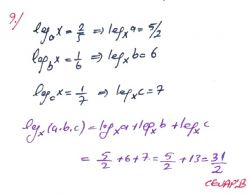 9./
logₐx = 2/5 ⇒ logₓa = 5/2
log_b x = 1/6 ⇒ logₓb = 6
log_c x = 1/7 ⇒ logₓc = 7
logₓ(a.b.c) = logₓa + logₓb + logₓc
= 5/2 + 6 + 7 = 5/2 + 13 = 31/2
CEVAP.B